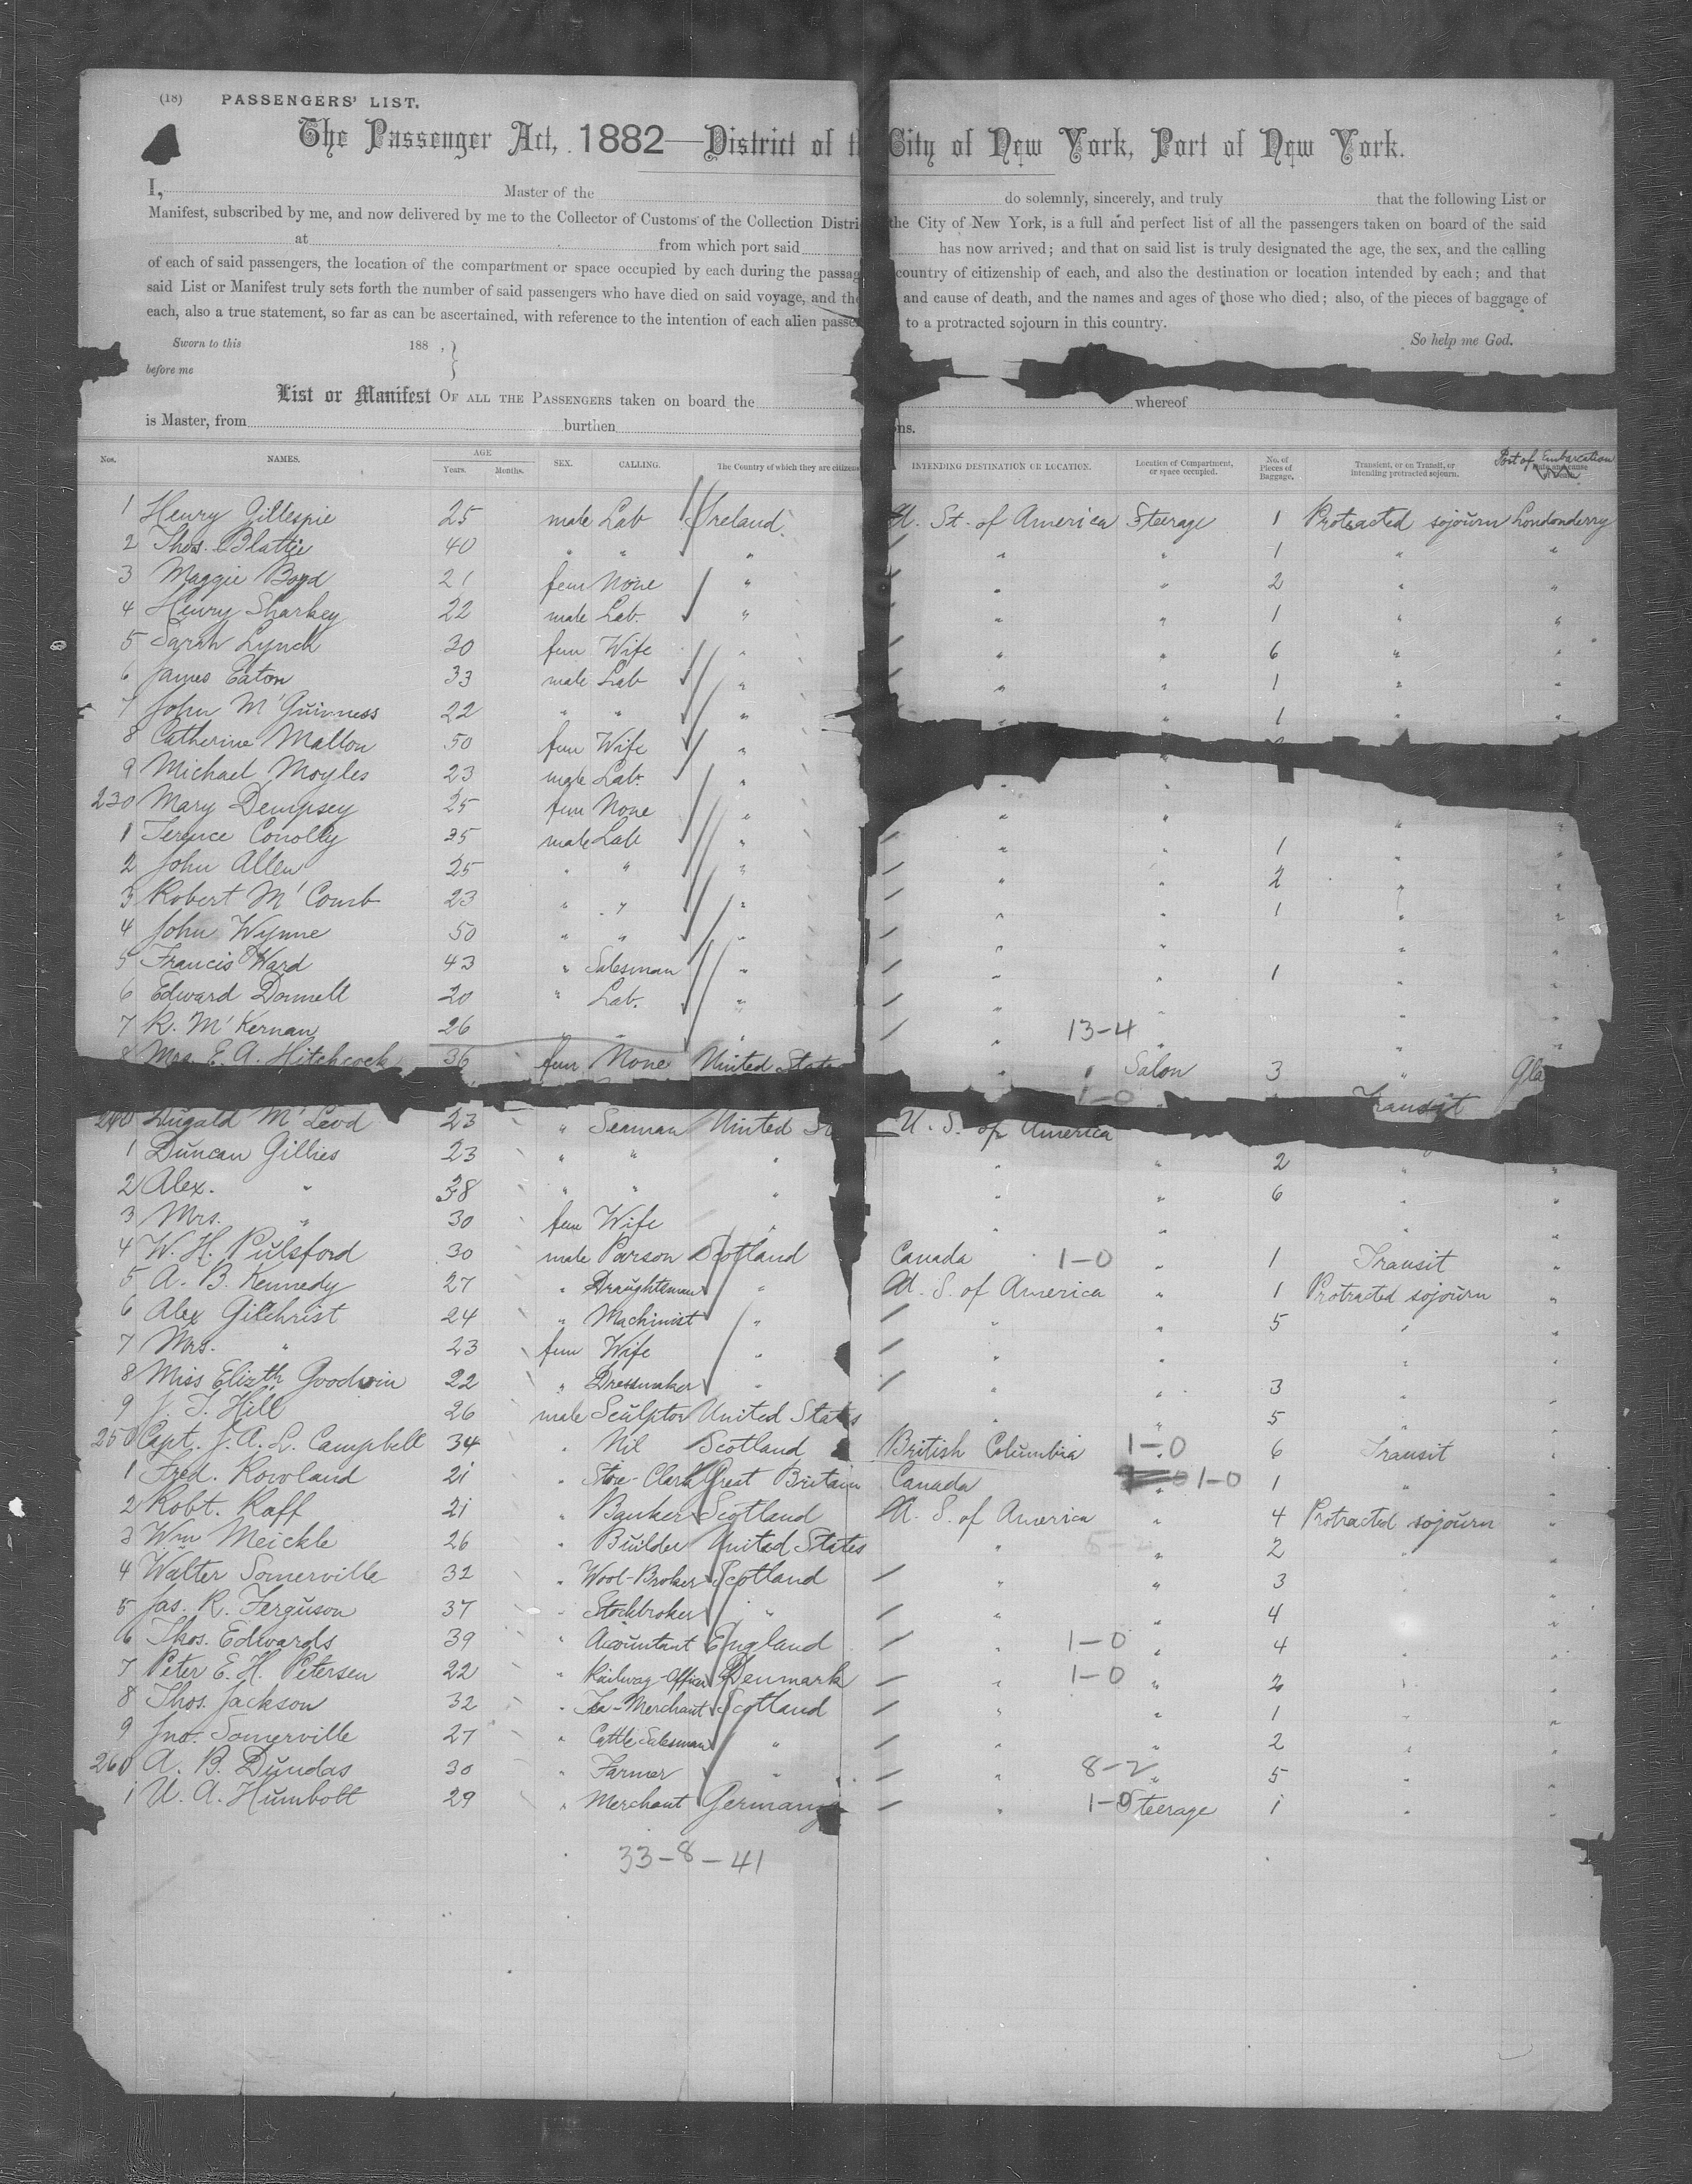 (18) PASSENGERS' LIST.
The Passenger Act, 1882—District of th City of New York, Port of New York.
I, Master of the do solemnly, sincerely, and truly that the following List or
Manifest, subscribed by me, and now delivered by me to the Collector of Customs of the Collection Distri the City of New York, is a full and perfect list of all the passengers taken on board of the said
at from which port said has now arrived; and that on said list is truly designated the age, the sex, and the calling
of each of said passengers, the location of the compartment or space occupied by each during the passag country of citizenship of each, and also the destination or location intended by each; and that
said List or Manifest truly sets forth the number of said passengers who have died on said voyage, and the and cause of death, and the names and ages of those who died; also, of the pieces of baggage of
each, also a true statement, so far as can be ascertained, with reference to the intention of each alien passen to a protracted sojourn in this country.
Sworn to this 188 , } So help me God.
before me
List or Manifest OF ALL THE PASSENGERS taken on board the whereof
is Master, from burthen ons.
Nos. NAMES. AGE Years. Months. SEX. CALLING. The Country of which they are citizens INTENDING DESTINATION OR LOCATION. Location of Compartment, or space occupied. No. of Pieces of Baggage. Transient, or on Transit, or intending protracted sojourn. Port of Embarcation
1 Henry Gillespie 25 male Lab Ireland U. St. of America Steerage 1 Protracted sojourn Londonderry
2 Thos. Blattie 40 " " " " " 1 " "
3 Maggie Boyd 21 fem None " " " 2 " "
4 Henry Sharkey 22 male Lab. " " " 1 " "
5 Sarah Lynch 30 fem Wife " " " 6 " "
6 James Eaton 33 male Lab " " " 1 " "
7 John M'Guinness 22 " " " 1 " "
8 Catherine Mallon 50 fem Wife "
9 Michael Moyles 23 male Lab. " " "
230 Mary Dempsey 25 fem None " " " " "
1 Terence Conolly 35 male Lab " " " 1 " "
2 John Allen 25 " " " " " 2 " "
3 Robert M'Comb 23 " " " " " 1 " "
4 John Wynne 50 " " " " " " "
5 Francis Ward 43 " Salesman " " " 1 " "
6 Edward Donnell 20 " Lab. " " " " "
7 R. M'Kernan 26 " " " 13-4 " " "
8 Mrs E. A. Hitchcock 36 fem None United State " Salon 3 " Gla
1-0 Transit
240 Dugald M'Leod 23 " Seaman United St U. S. of America
1 Duncan Gillies 23 " " " " " 2 " "
2 Alex. " 38 " " " " " 6 " "
3 Mrs. " 30 fem Wife " " " " "
4 W. H. Pulsford 30 male Parson Scotland Canada 1-0 " 1 Transit "
5 A. B. Kennedy 27 " Draughtsman " U. S. of America " 1 Protracted sojourn "
6 Alex Gilchrist 24 " Machinist " " " 5 " "
7 Mrs. " 23 fem Wife " " " " "
8 Miss Elizth Goodwin 22 " Dressmaker " " " 3 " "
9 J. T. Hill 26 male Sculptor United States " " 5 " "
250 Capt. J. A. L. Campbell 34 " Nil Scotland British Columbia 1-0 " 6 Transit "
1 Fred. Rowland 21 " Store-Clerk Great Britain Canada 1-0 " 1 " "
2 Robt. Raff 21 " Banker Scotland U. S. of America " 4 Protracted sojourn "
3 Wm Meickle 26 " Builder United States " " 2 " "
4 Walter Somerville 32 " Wool-Broker Scotland " " 3 " "
5 Jas. R. Ferguson 37 " Stockbroker " " " 4 " "
6 Thos. Edwards 39 " Accountant England " 1-0 " 4 " "
7 Peter E. H. Petersen 22 " Railway-Officer Denmark " 1-0 " 2 " "
8 Thos. Jackson 32 " Tea-Merchant Scotland " " 1 " "
9 Jno. Somerville 27 " Cattle Salesman " " " 2 " "
260 A. B. Dundas 30 " Farmer " " 8-2 " 5 " "
1 U. A. Humbolt 29 " Merchant Germany " 1-0 Steerage 1 " "
33-8-41